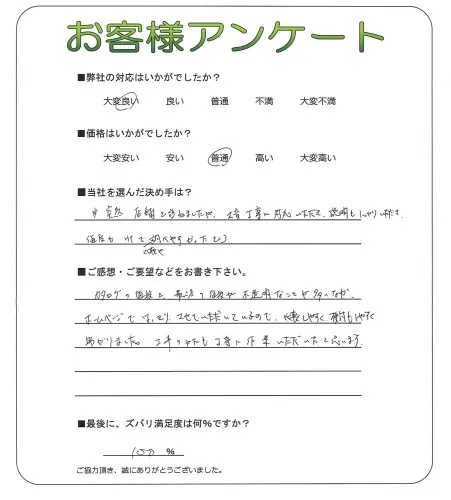 お客様アンケート
■弊社の対応はいかがでしたか？
大変良い 良い 普通 不満 大変不満
■価格はいかがでしたか？
大変安い 安い 普通 高い 大変高い
■当社を選んだ決め手は？
店舗を訪ねましたが、丁寧に対応いただき、説明もしっかりいただき
価格も
■ご感想・ご要望などをお書き下さい。
カタログの値段と、の値段が不透明なことが多いなか、
ホームページではっきりさせていただいているので、比較しやすく検討もしやすく
助かりました。工事のかたも丁寧に作業いただいたと思います。
■最後に、ズバリ満足度は何％ですか？
100 ％
ご協力頂き、誠にありがとうございました。